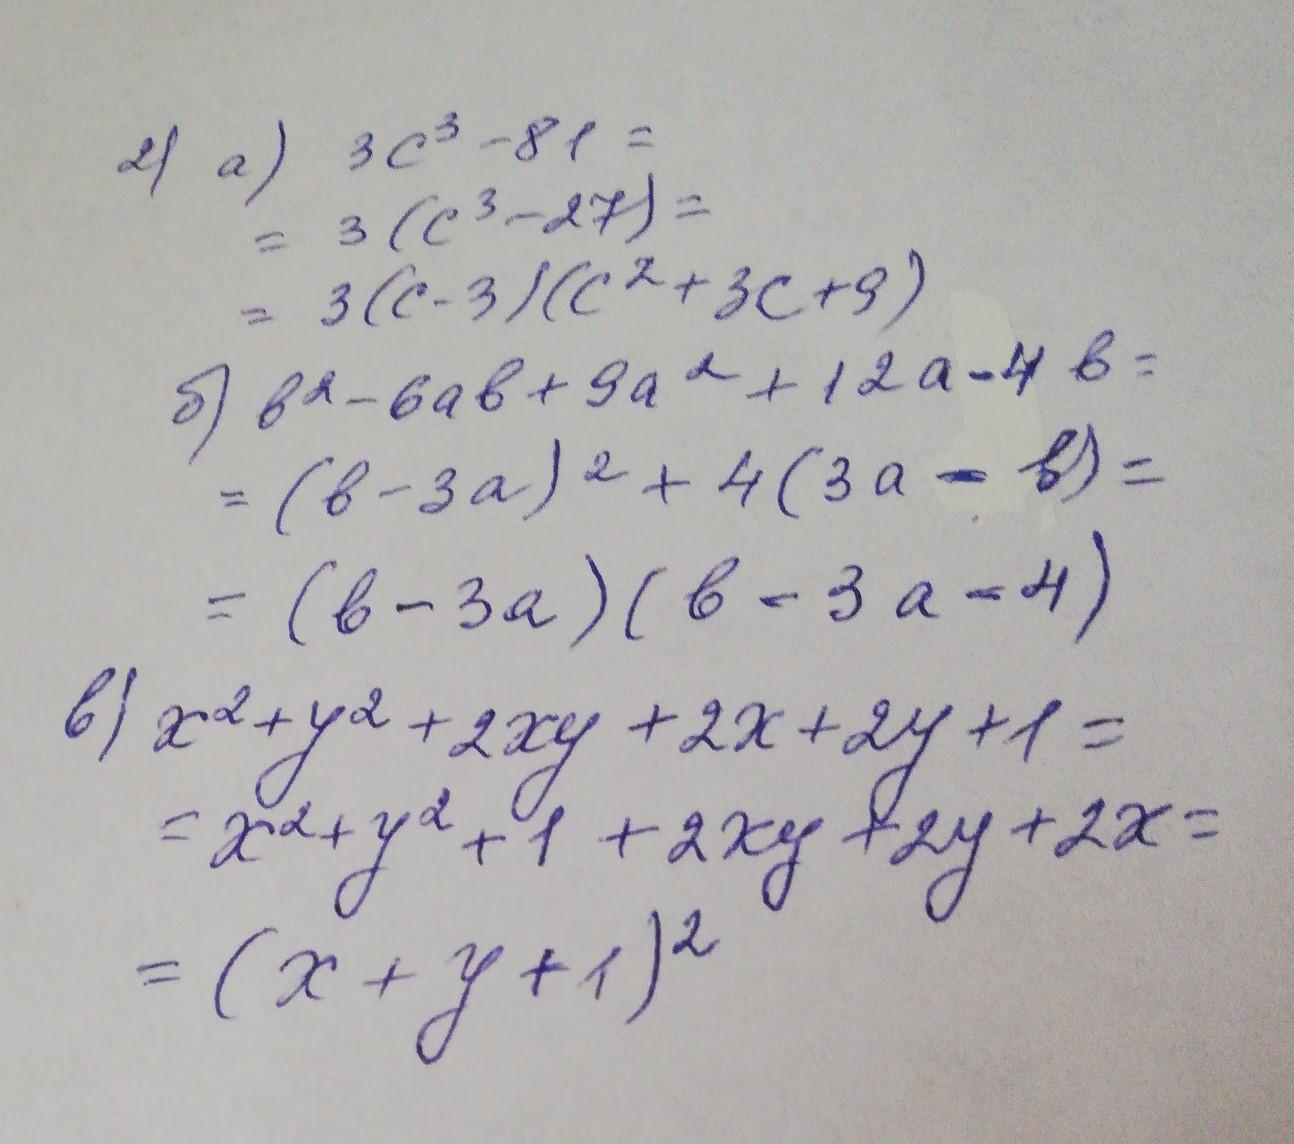 2) а) 3c³ - 81 =
= 3(c³ - 27) =
= 3(c - 3)(c² + 3c + 9)
б) b² - 6ab + 9a² + 12a - 4b =
= (b - 3a)² + 4(3a - b) =
= (b - 3a)(b - 3a - 4)
в) x² + y² + 2xy + 2x + 2y + 1 =
= x² + y² + 1 + 2xy + 2y + 2x =
= (x + y + 1)²